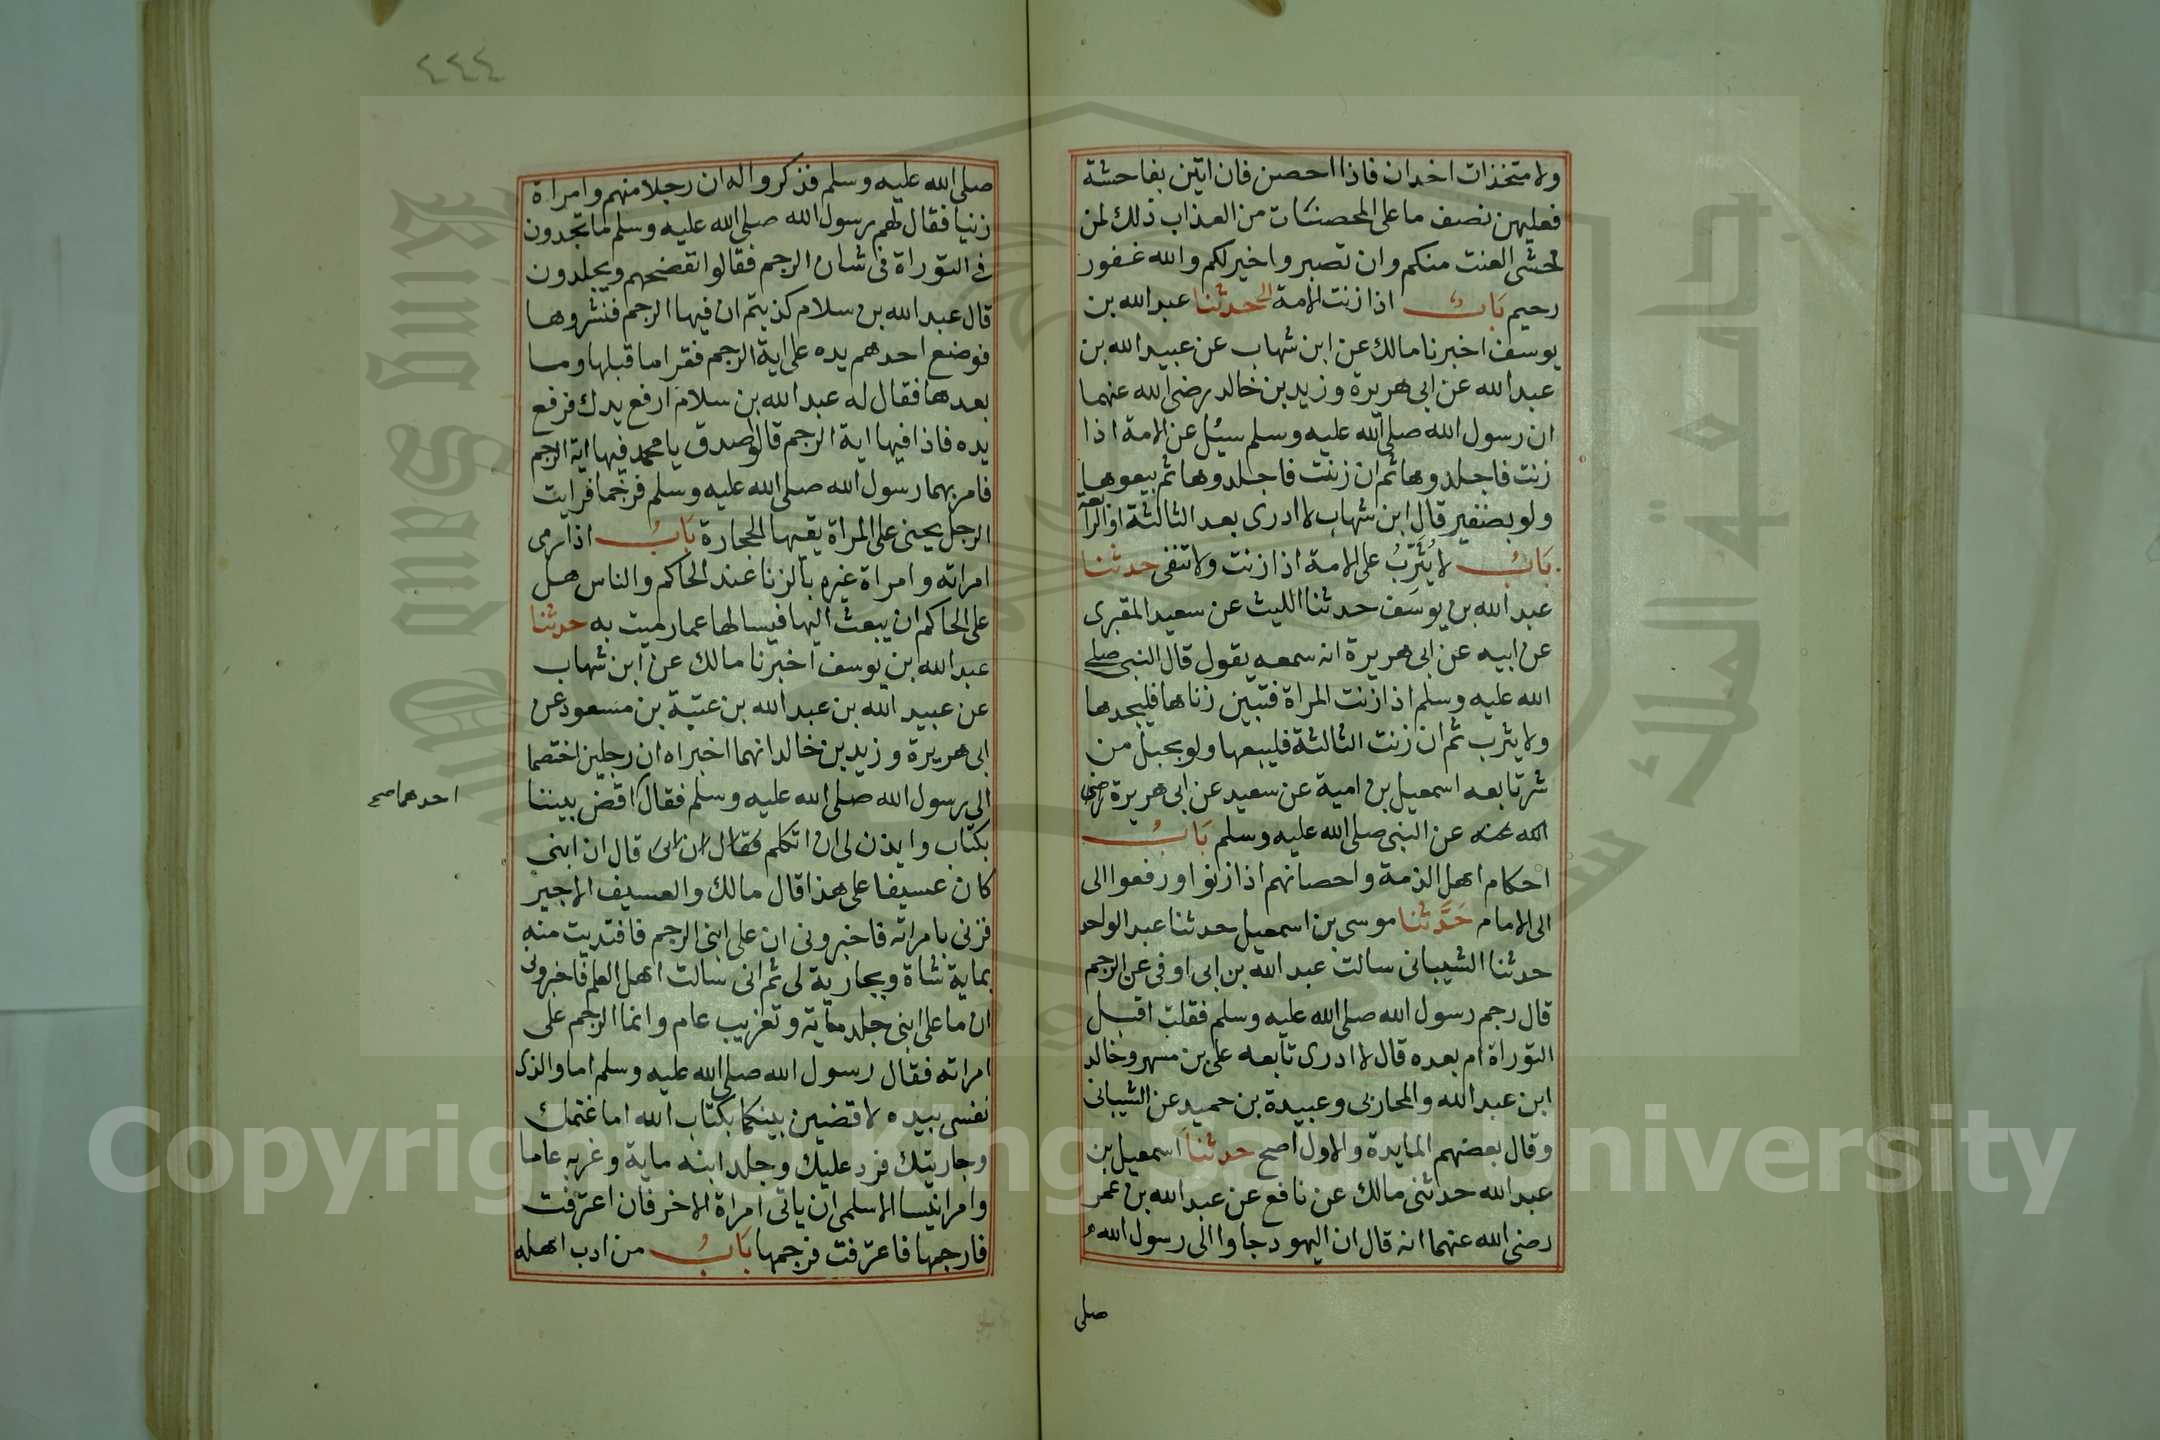 ولا متخذات اخدان فاذا احصن فان اتين بفاحشة
فعليهن نصف ما على المحصنات من العذاب ذلك لمن
خشى العنت منكم وان تصبروا خير لكم والله غفور
رحيم باب اذا زنت الامة حدثنا عبد الله بن
يوسف اخبرنا مالك عن ابن شهاب عن عبيد الله بن
عبد الله عن ابى هريرة و زيد بن خالد رضى الله عنهما
ان رسول الله صلى الله عليه وسلم سيل عن الامة اذا
زنت فاجلدوها ثم ان زنت فاجلدوها ثم بيعوها
ولو بضفير قال ابن شهاب لا ادرى بعد الثالثة او الرابعة
باب لا يثرب على الامة اذا زنت ولا تنفى حدثنا
عبد الله بن يوسف حدثنا الليث عن سعيد المقبرى
عن ابيه عن ابى هريرة انه سمعه يقول قال النبى صلى
الله عليه وسلم اذا زنت المراة فتبين زناها فليجدها
ولا يثرب ثم ان زنت الثالثة فليبعها ولو بحبل من
شعر تابعه اسمعيل بن امية عن سعيد عن ابى هريرة رضى
الله عنه عن النبى صلى الله عليه وسلم باب
احكام اهل الذمة واحصانهم اذا زنوا و رفعوا الى
الى الامام حدثنا موسى بن اسمعيل حدثنا عبد الواحد
حدثنا الشيبانى سالت عبد الله بن ابى اوفى عن الرجم
قال رجم رسول الله صلى الله عليه وسلم فقلت اقبل
التوراة ام بعده قال لا ادرى تابعه على بن مسهر وخالد
ابن عبد الله والمحاربى وعبيدة بن حميد عن الشيبانى
وقال بعضهم المايدة والاول اصح حدثنا اسمعيل بن
عبد الله حدثنى مالك عن نافع عن عبد الله بن عمر
رضى الله عنهما انه قال ان اليهود جاوا الى رسول الله
صلى
٤٤٤
صلى الله عليه وسلم فذكروا له ان رجلا منهم وامراة
زنيا فقال لهم رسول الله صلى الله عليه وسلم ما تجدون
فى التوراة فى شان الرجم فقالوا نفضحهم ويجلدون
قال عبد الله بن سلام كذبتم ان فيها الرجم فنشروها
فوضع احدهم يده على اية الرجم فقرا ما قبلها وما
بعدها فقال له عبد الله بن سلام ارفع يدك فرفع
يده فاذا فيها اية الرجم قالوا صدق يا محمد فيها اية الرجم
فامر بهما رسول الله صلى الله عليه وسلم فرجما فرايت
الرجل يحنى على المراة يقيها الحجارة باب اذا رمى
امراته وامراة غيره بالزنا عند الحاكم والناس هل
على الحاكم ان يبعث اليها فيسالها عما رميت به حدثنا
عبد الله بن يوسف اخبرنا مالك عن ابن شهاب
عن عبيد الله بن عبد الله بن عتبة بن مسعود عن
ابى هريرة و زيد بن خالد انهما اخبراه ان رجلين اختصما
الى رسول الله صلى الله عليه وسلم فقال اقض بيننا
احدهما صح
بكتاب وايذن لى ان اتكلم فقال ان ابى قال ان ابنى
كان عسيفا على هذا قال مالك والعسيف الاجير
فزنى بامراته فاخبرونى ان على ابنى الرجم فافتديت منه
بماية شاة وبجارية لى ثم انى سالت اهل العلم فاخبرونى
ان ما على ابنى جلد ماية وتغريب عام وانما الرجم على
امراته فقال رسول الله صلى الله عليه وسلم اما والذى
نفسى بيده لاقضين بينكما بكتاب الله اما غنمك
وجاريتك فرد عليك وجلد ابنه ماية وغربه عاما
وامر انيسا الاسلمى ان ياتى امراة الاخر فان اعترفت
فارجمها فاعترفت فرجمها باب من ادب اهله
Copyright © King Saud University
King Saud University
جامعة الملك سعود